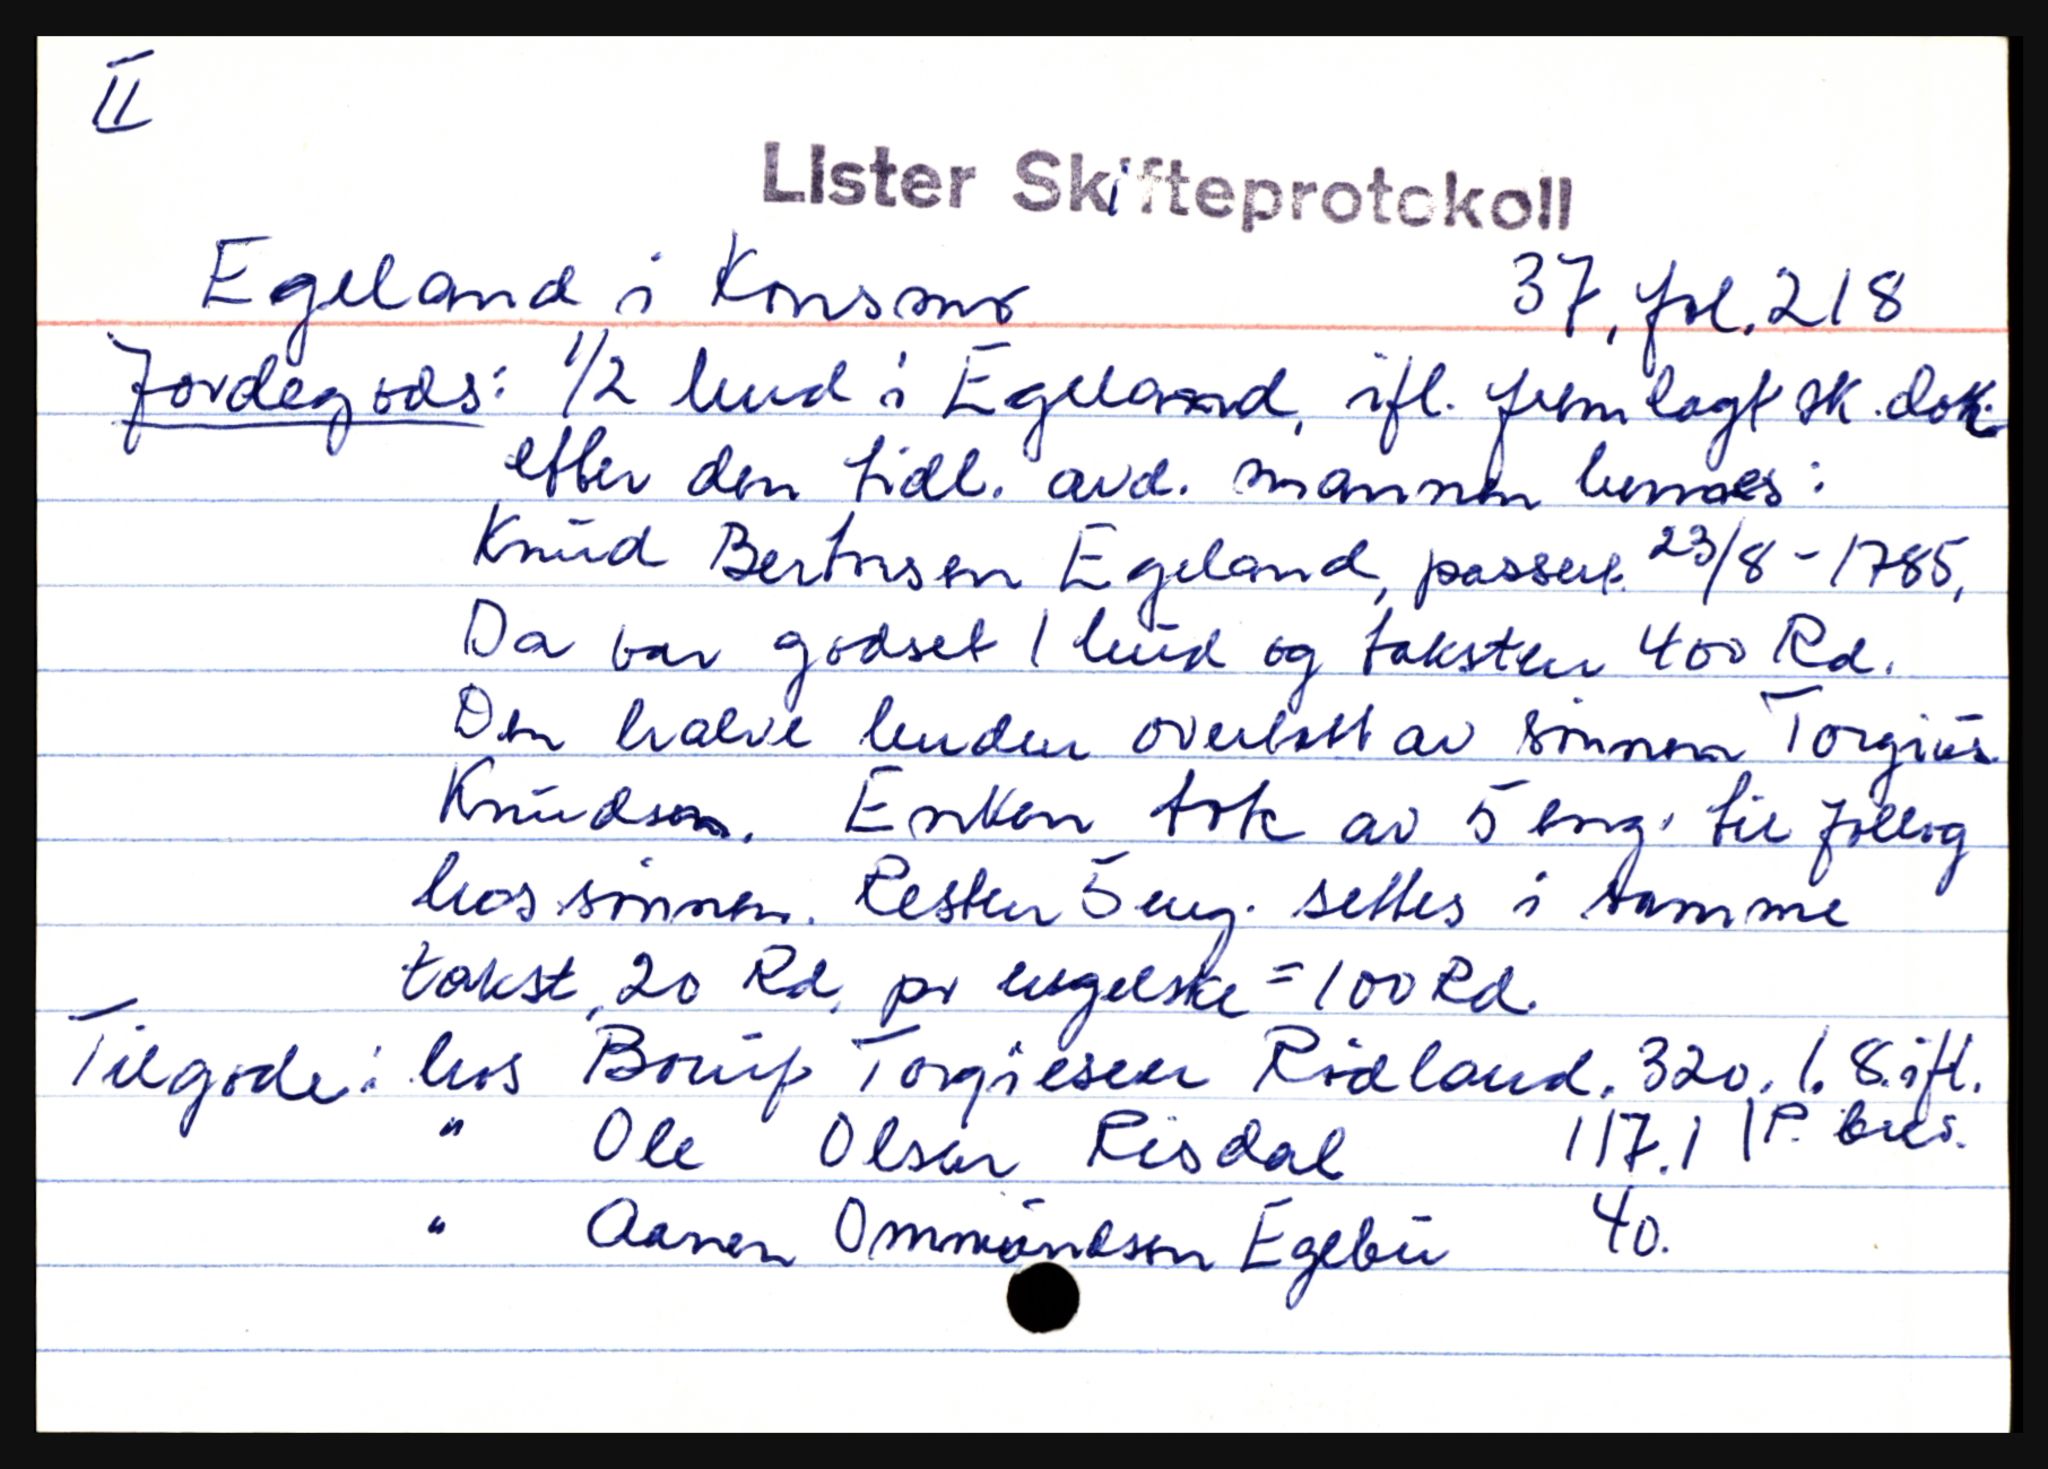 II
Lister Skifteprotokoll
Egeland i Konsmo 37, fol. 218
Jordegods: 1/2 hud i Egeland, ifl. fremlagt sk. dok.
efter den tidl. avd. mannen hennes:
Knud Bertnsen Egeland, passert 23/8 - 1785,
Da var godset 1 hud og taksten 400 Rd.
Den halve huden overlatt av sønnen Torgius
Knudsen. Enken tok av 5 eng. til follog
hos sønnen. Resten 5 eng. settes i samme
takst, 20 Rd. pr engelske = 100 Rd.
Tilgode: hos Torgiesen Rødland. 320. 1. 8. ifl.
" Ole Olsen Risdal 117. 1 | P. brev.
" Aanen Ommundsen Egebu 40.